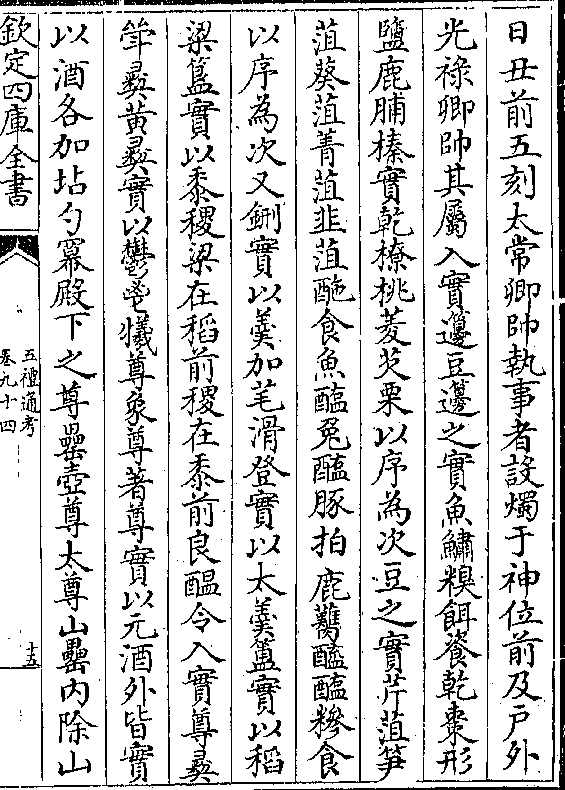 日丑前五刻太常卿帥執事者設燭于神位前及户外
光祿卿帥其屬入實籩豆籩之實魚鱐糗餌餈乾棗形
鹽鹿脯榛實乾橑桃菱芡栗以序為次豆之實芹菹笋
菹葵菹菁菹韭菹酏食魚醢兔醢豚拍鹿臡醓醢糝食
以序為次又鉶實以羮加芼滑登實以太羮簠實以稻
粱簋實以黍稷粱在稻前稷在黍前良醖令入實尊彛
斝彛黄彛實以鬱鬯犧尊象尊著尊實以元酒外皆實
以酒各加坫勺冪殿下之尊罍壺尊太尊山罍内除山
欽定四庫全書
五禮通考
卷九十四
十五